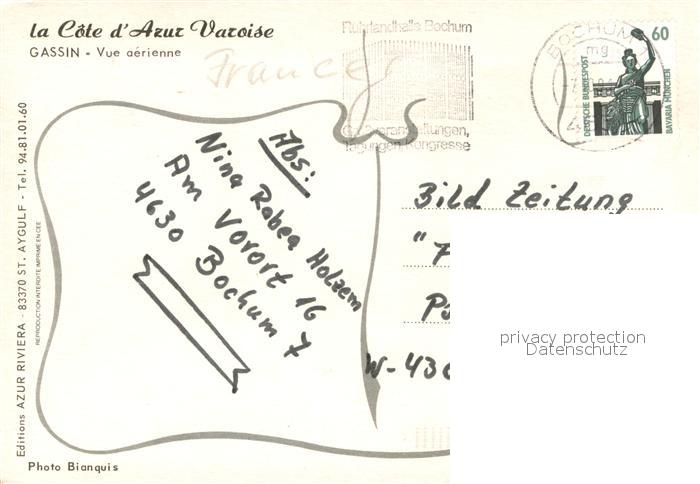 la Côte d'Azur Varoise
GASSIN - Vue aérienne
France
Ruhrlandhalle Bochum
Tagungen, Kongresse
BOCHUM
mg
60
DEUTSCHE BUNDESPOST
BAVARIA MÜNCHEN
Editions AZUR RIVIERA - 83370 ST. AYGULF - Tel. 94.81.01.60
REPRODUCTION INTERDITE IMPRIME EN CEE
Abs:
Nina Rabea Holzem
Am Vorort 16
4630 Bochum 7
Bild Zeitung
W-43
privacy protection
Datenschutz
Photo Bianquis